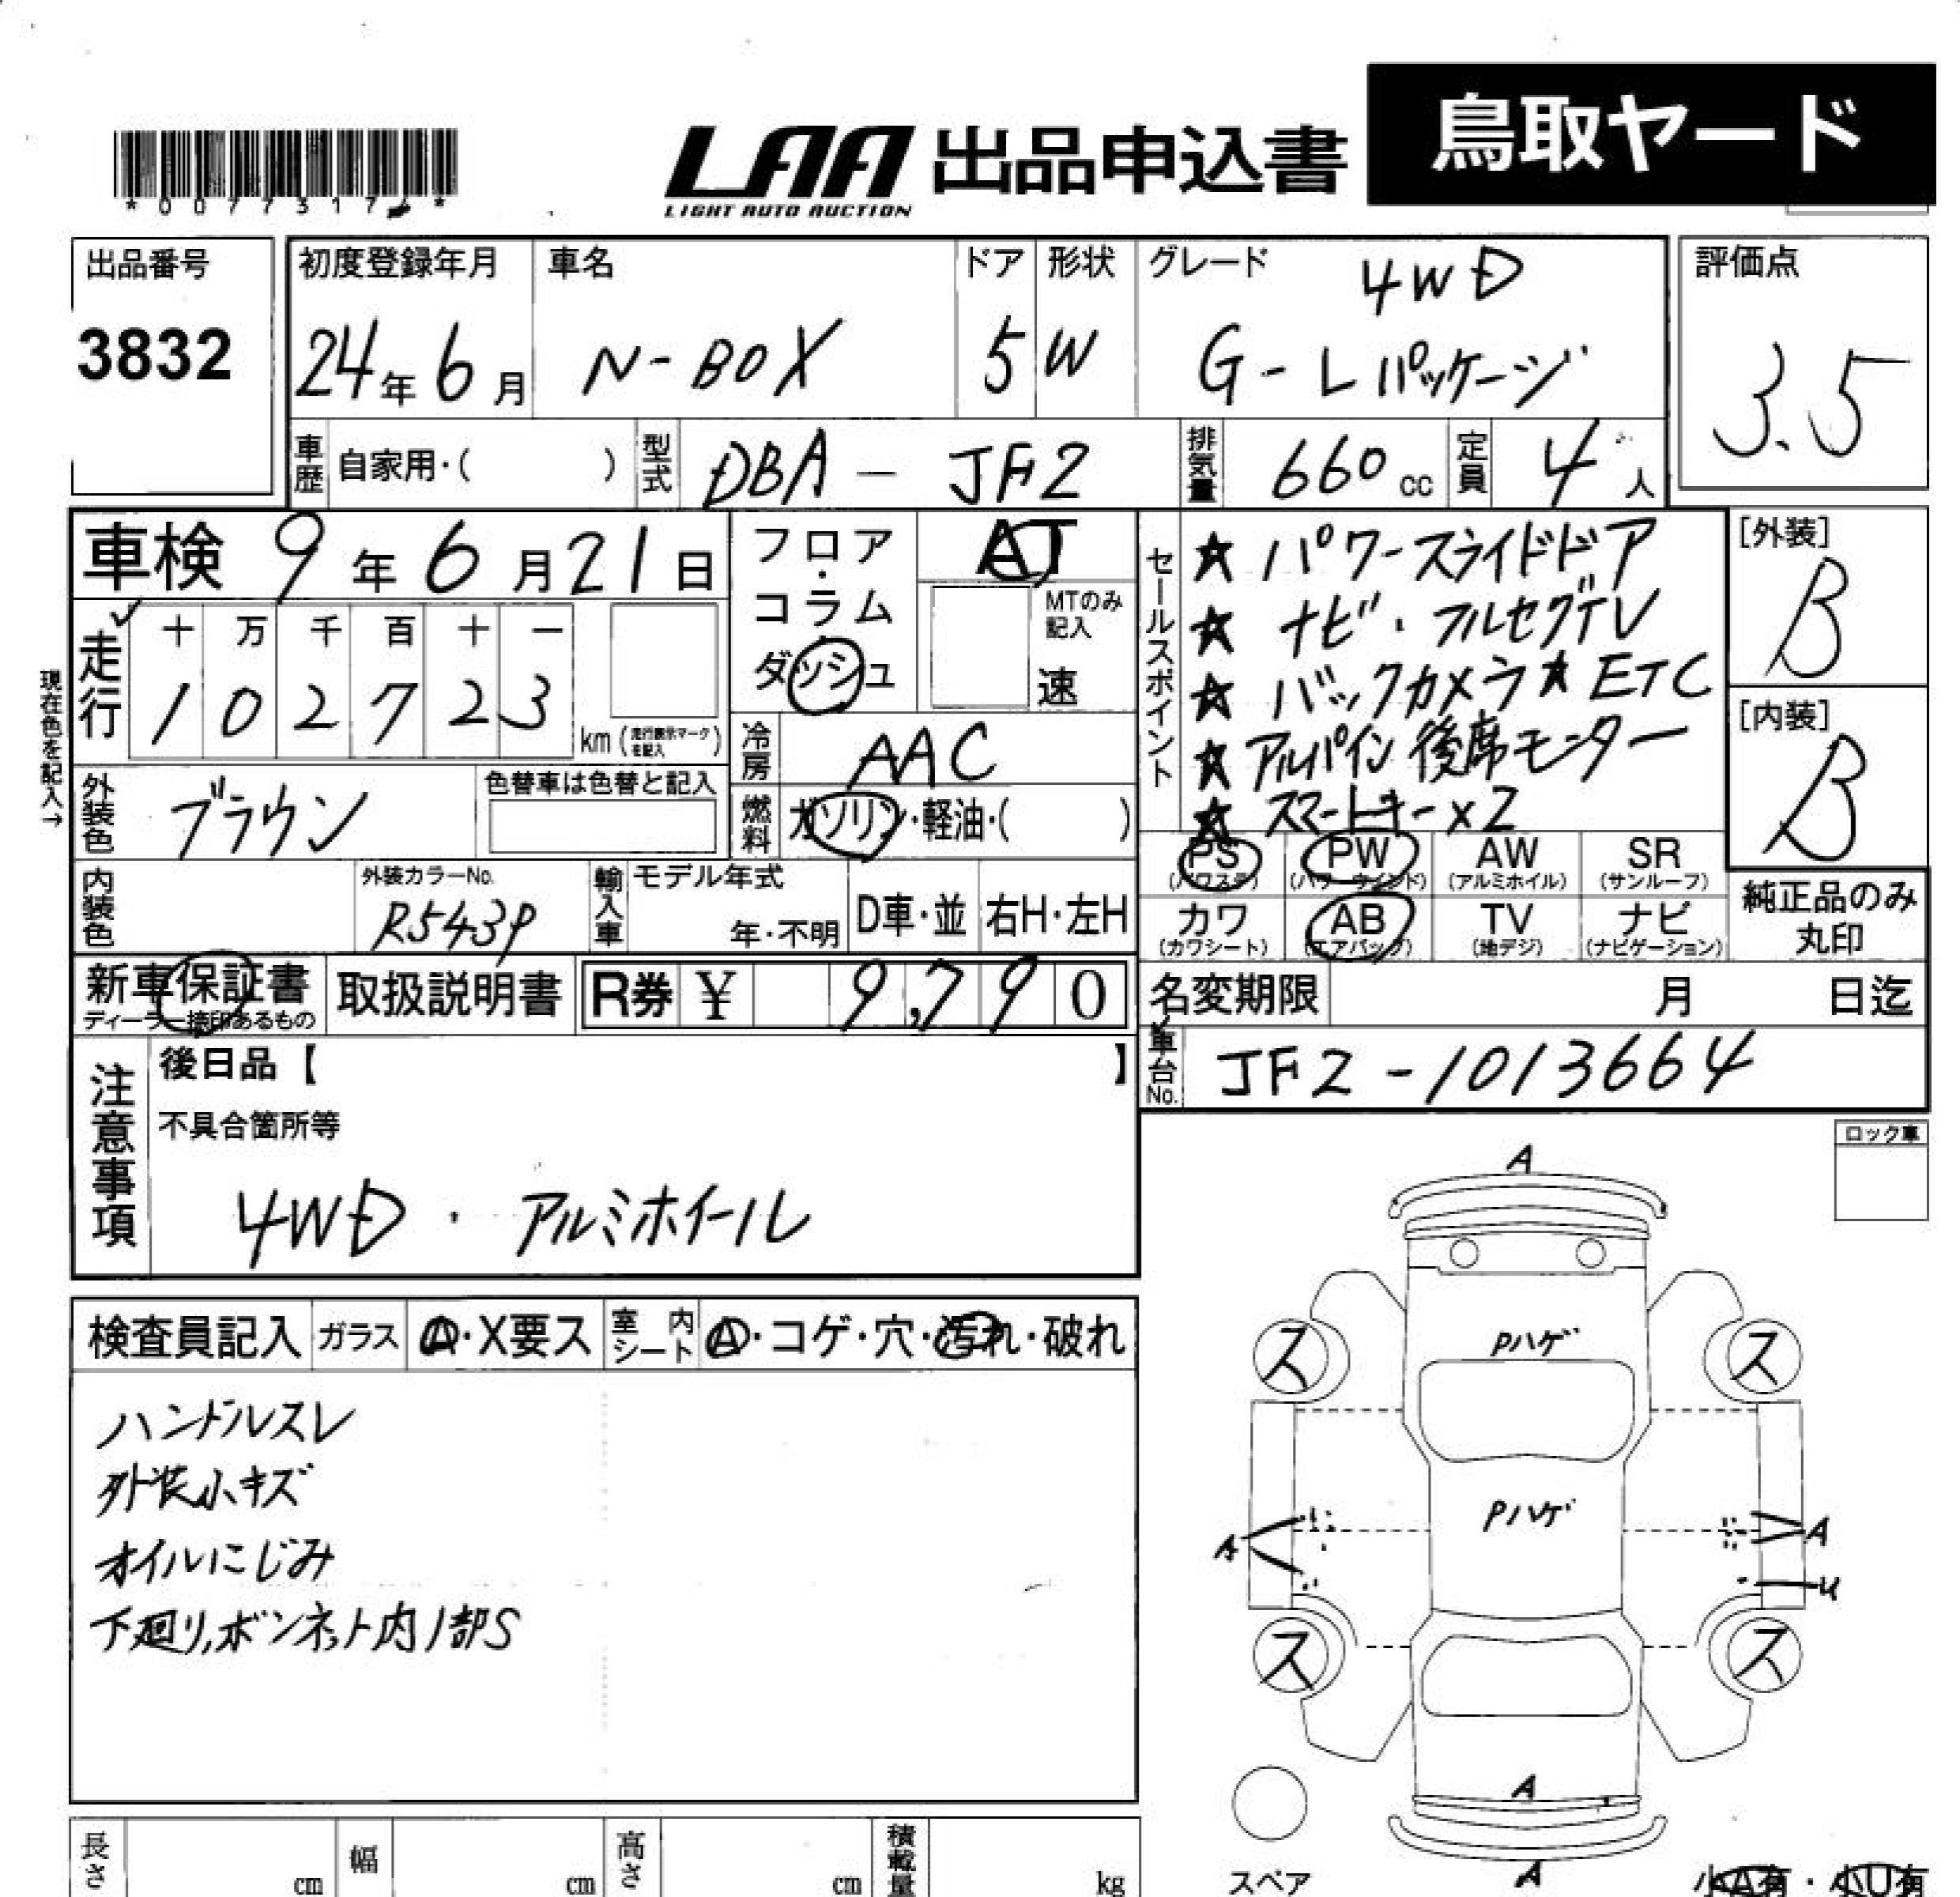 鳥取ヤード
LAA 出品申込書
LIGHT AUTO AUCTION
出品番号
3832
初度登録年月
24年6月
車名
N-BOX
ドア
5
形状
W
グレード
4WD
G-Lパッケージ
評価点
3.5
車歴
自家用・( )
型式
DBA-JF2
排気量
660 cc
定員
4人
車検 9年6月21日
フロア・コラム
ダッシュ
AT
MTのみ記入
速
セールスポイント
★パワースライドドア
★ナビ・フルセグTV
★バックカメラ★ETC
★アルパイン後席モニター
★スマートキー×2
[外装]
B
[内装]
B
現在色を記入→
走行
十 万 千 百 十 一
1 0 2 7 2 3
km (走行表示マークを記入)
冷房
AAC
外装色
ブラウン
色替車は色替と記入
燃料
ガソリン・軽油・( )
PS
(パワステ)
PW
(パワーウインド)
AW
(アルミホイル)
SR
(サンルーフ)
カワ
(カワシート)
AB
(エアバッグ)
TV
(地デジ)
ナビ
(ナビゲーション)
純正品のみ丸印
内装色
外装カラーNo.
R543P
輸入車
モデル年式
年・不明
D車・並
右H・左H
新車保証書
ディーラー捺印あるもの
取扱説明書
R券 ¥ 9,790
名変期限 月 日迄
車台No.
JF2-1013664
注意事項
後日品【 】
不具合箇所等
4WD・アルミホイール
ロック車
検査員記入
ガラス
A・X要ス
室内シート
A・コゲ・穴・汚れ・破れ
ハンドルスレ
外装小キズ
オイルにじみ
下廻り,ボンネット内1部S
A
Pハゲ
ス
ス
Pハゲ
A
A
U
ス
ス
A
A
スペア
小A有・小U有
長さ cm
幅 cm
高さ cm
積載量 kg